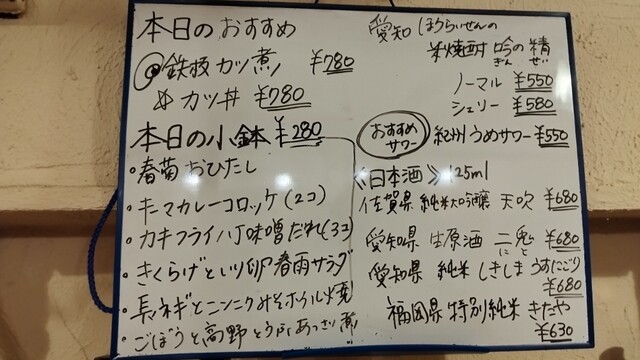 本日のおすすめ
鉄板カツ煮 ¥780
〆カツ丼 ¥780
本日の小鉢 ¥280
・春菊おひたし
・キーマカレーコロッケ(2コ)
・カキフライ八丁味噌だれ(3コ)
・きくらげといり卵春雨サラダ
・長ネギとニンニクみそホイル焼
・ごぼうと高野とうふあっさり煮
愛知 ほうらいせんの
米焼酎 吟の精
ぎん せい
ノーマル ¥550
シェリー ¥580
おすすめサワー 紀州うめサワー ¥550
《日本酒》 125ml
佐賀県 純米大吟醸 天吹 ¥680
愛知県 生原酒 二兎 ¥680
にと
愛知県 純米 しきしま うすにごり
¥680
福岡県 特別純米 きたや
¥630